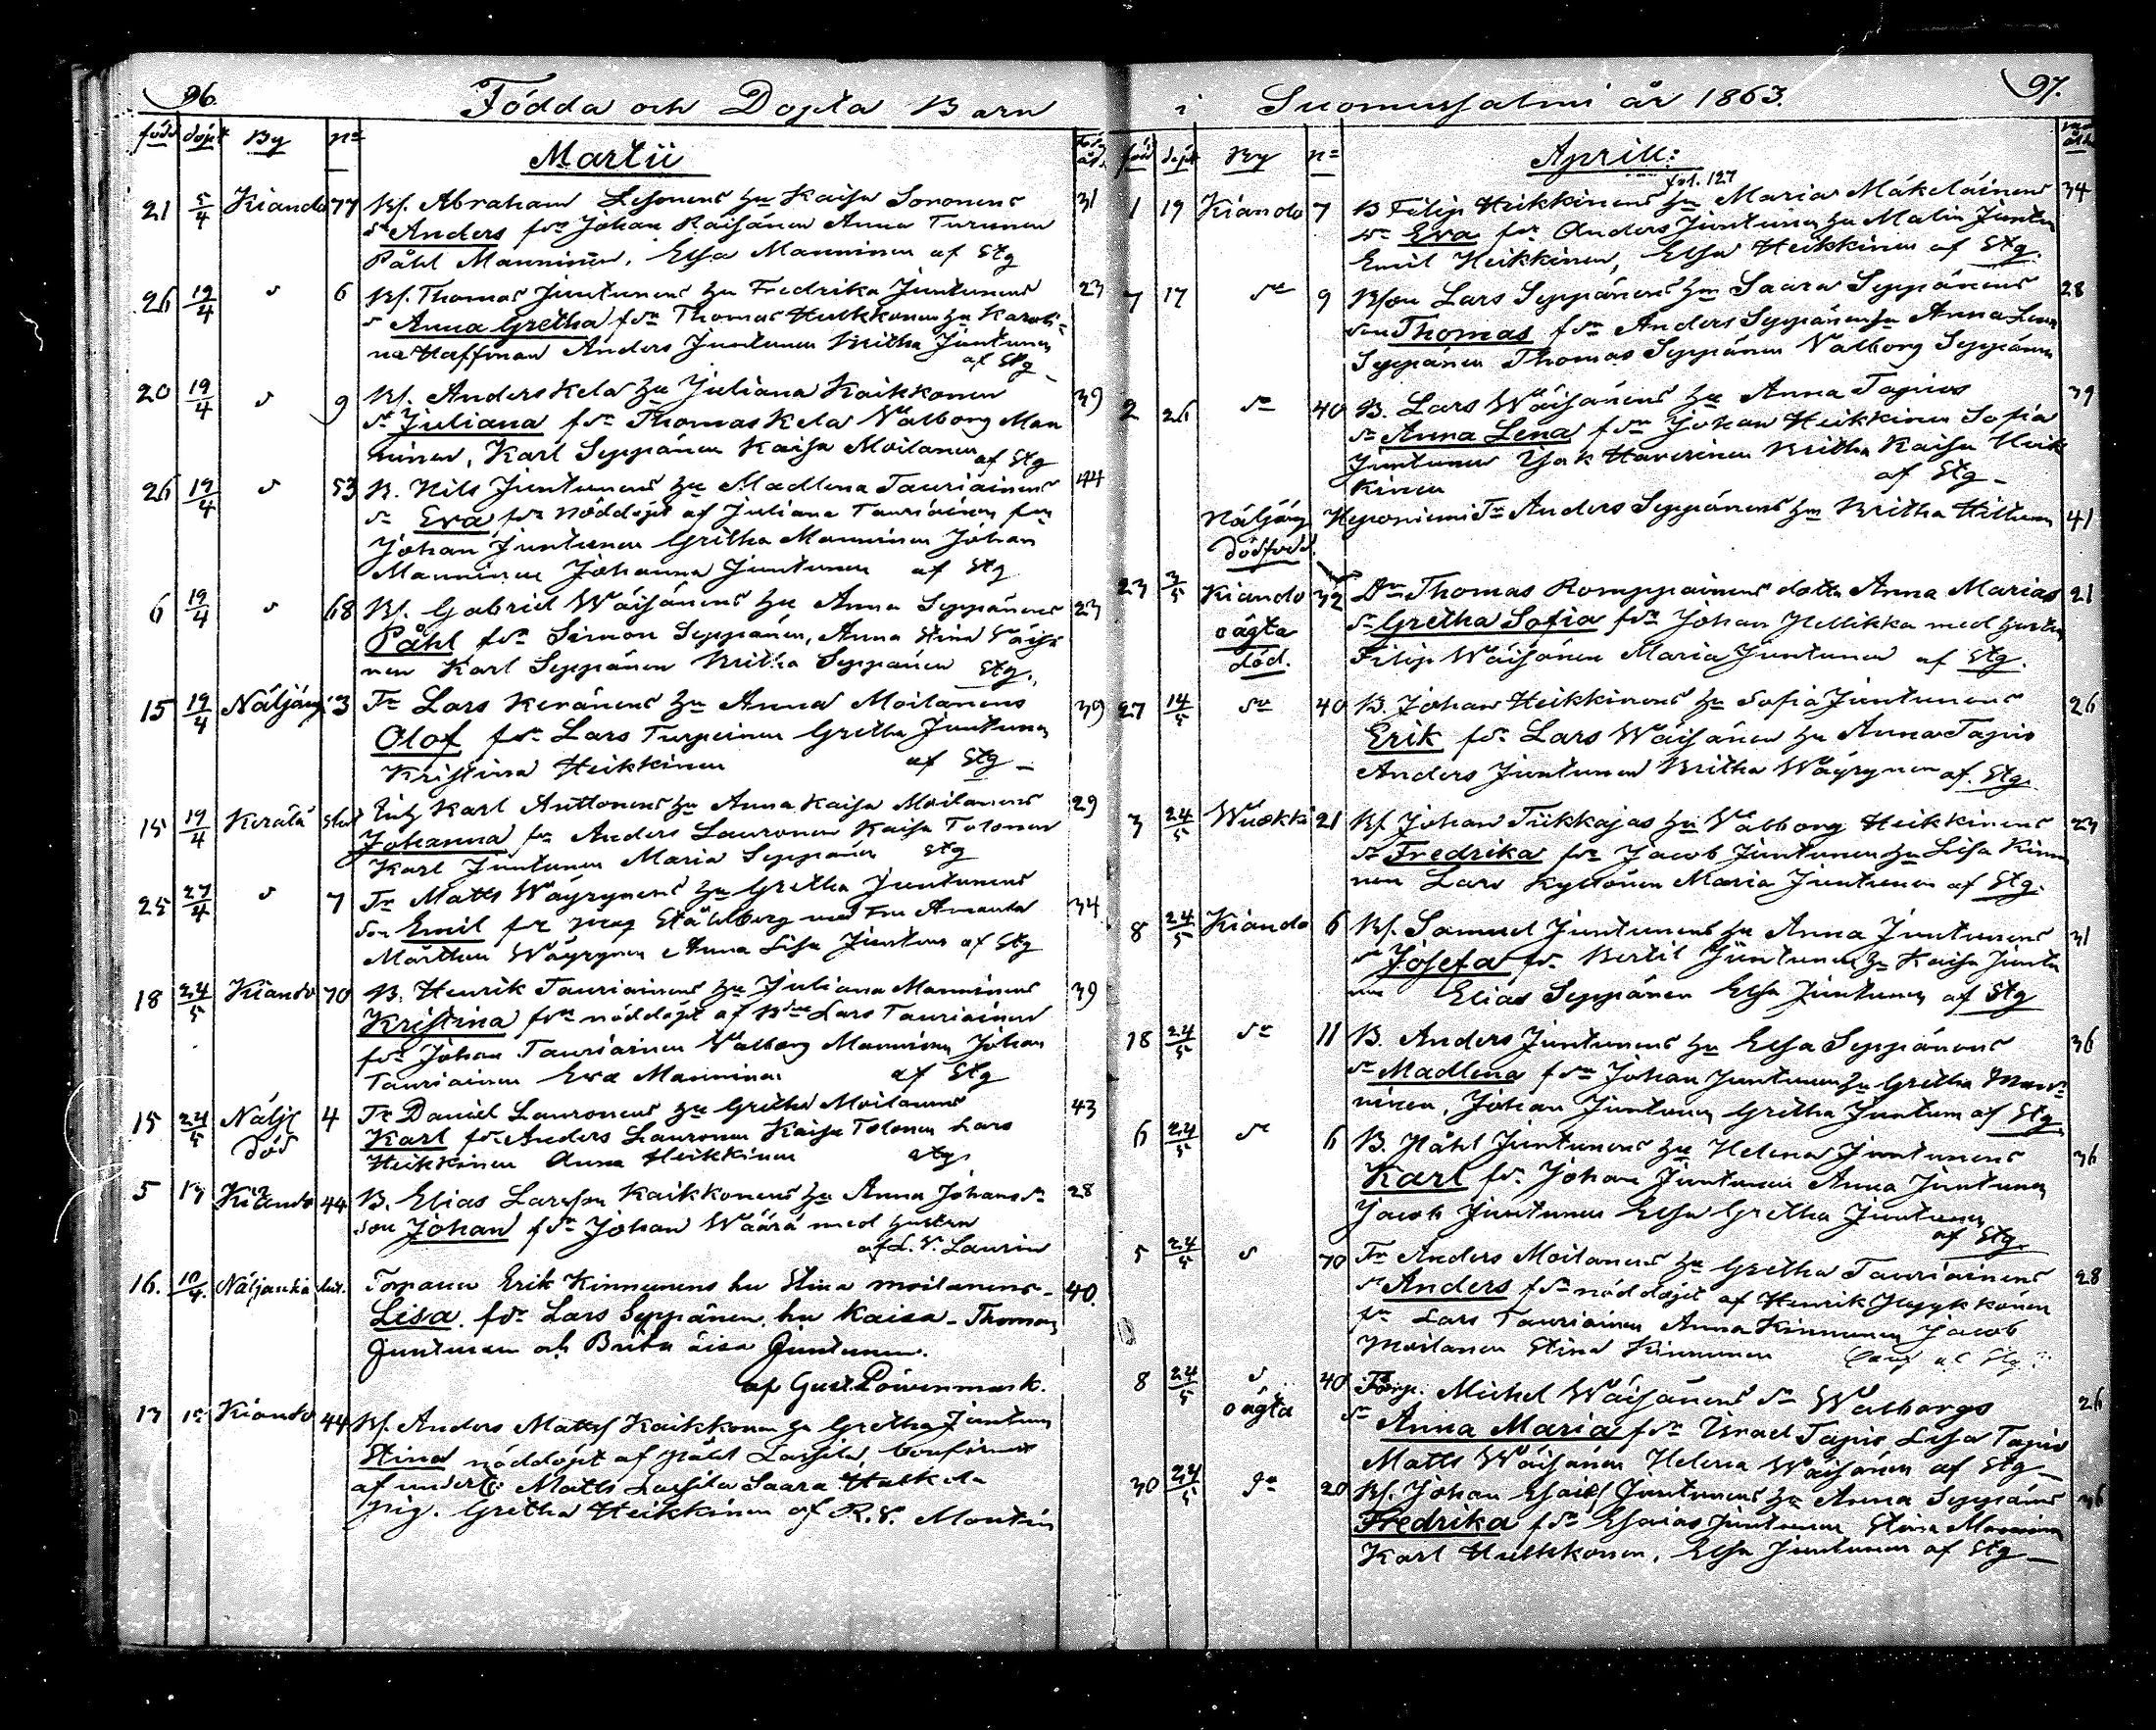 96.
Födda och Dopta Barn
född döpt By no
Martii
21 5/4 Kiando 77 Bf. Abraham Lesonens hu Kaisa Soronens 31
dr Anders fdr Johan Räisänen Anna Turunen
Påhl Manninen, Elsa Manninen af Stg
26 19/4 d 6 Bf. Thomas Juntunens hu Fredrika Juntunens 23
d Anna Gretha fdr Thomas Hulkkonen hu Karoli-
na Haffman Anders Juntunen Britha Juntunen
af Stg
20 19/4 d 9 Bf. Anders Kela hu Juliana Kaikkonen 39
dr Juliana fdr Thomas Kela Walborg Man
ninen, Karl Seppänen Kaisa Moilanen af Stg
26 19/4 d 53 B. Nils Juntunens hu Madlena Tauriainens 44
dr Eva fdr nöddöpt af Juliana Tauriainen fdr
Johan Juntunen Gretha Manninen Johan
Manninen Johanna Juntunen af Stg
6 19/4 d 68 Bf. Gabriel Wäisänens hu Anna Seppänens 23
Påhl fdr Simon Seppänen, Anna Stina Wäisä
nen Karl Seppänen Britha Seppänen Stg.
15 19/4 Näljäng 3 Tr Lars Keränens hu Anna Moilanens 39
Olof fdr Lars Turpeinen Gretha Juntunen
Kristina Heikkinen af Stg
15 19/4 Kerälä slut Inh Karl Anttonens hu Anna Kaisa Moilanens 29
Johanna fdr Anders Lauronen Kaisa Tolonen
Karl Juntunen Maria Seppänen Stg
25 27/4 d 7 Tr Matts Wäyrynens hu Gretha Juntunens 34
son Emil fdr Mag Ståhlberg med Fru Amanda
Mårthen Wäyrynen Anna Lisa Juntunen af Stg
18 24/5 Kiando 70 B. Henrik Tauriainens hu Juliana Manninens 39
Kristina fdr nöddöpt af Lars Tauriainen
fdr Johan Tauriainen Walborg Manninen Johan
Tauriainen Eva Manninen af Stg
15 24/5 Nälj 4 Tr Daniel Lauronens hu Gretha Moilanens 43
död
Karl fdr Anders Lauronen Kaisa Tolonen Lars
Heikkinen Anna Heikkinen Stg.
5 17 Kiando 44 B. Elias Larsson Kaikkonens hu Anna Johansdr 28
son Johan fdr Johan Wäärä med hustru
af L. V. Laurin
16. 10/4. Näljänkä slut. Torparen Erik Kinnunens hu Stina Moilanens- 40.
Lisa. fdr Lars Seppänen, hu Kaisa - Thomas
Juntunen och Brita Lisa Juntunen.
af Gust. Löwenmark.
17 15 Kiando 44 Bf. Anders Mattsf Kaikkonen hu Gretha Juntunen
Stina nöddöpt af Påhl Lassila, Confirm
af undert: Matts Lassila Saara
pig. Gretha Heikkinen af R. V. Montin
i Suomussalmi år 1863. 97.
född döpt By no
Aprill:
fol. 127
1 19 Kiando 7 B Filip Heikkinens hu Maria Mäkeläinens 34
dr Eva fdr Anders Juntunen hu Malin Juntu
Emil Heikkinen, Elsa Heikkinen af Stg.
7 17 dr 9 Bson Lars Seppänens hu Saara Seppänens 28
son Thomas fdr Anders Seppänen hu Anna Lena
Seppänen Thomas Seppänen Walborg Seppänen
2 26 dr 40 B. Lars Wäisänens hu Anna Tapios 39
dr Anna Lena fdr Johan Heikkinen Sofia
Juntunen Isak Haverinen Britha Kaisa Heik
kinen af Stg
Näljäng Heponiemi Tr Anders Seppänens hu Britha Hiltunen 41
dödfödd.
23 3/5 Kiando 32 Dr Thomas Romppainens dotter Anna Marias 21
oägta
död.
dr Gretha Sofia fdr Johan Hellikka med hustru
Filip Wäisänen Maria Juntunen af Stg.
27 14/5 dr 40 B. Johan Heikkinens hu Sofia Juntunens 26
Erik fdr Lars Wäisänen hu Anna Tapio
Anders Juntunen Britha Wäyrynen af Stg.
3 24/5 Wuokki 21 Bf Johan Tiikkajas hu Walborg Heikkinens 23
dr Fredrika fdr Jacob Juntunen hu Lisa Kinnu
nen Lars Kyllönen Maria Juntunen af Stg.
8 24/5 Kiando 6 Bf. Samuel Juntunens hu Anna Juntunens 31
dr Josefa fdr Bertil Juntunen hu Kaisa Juntu
nen Elias Seppänen Elsa Juntunen af Stg
18 24/5 dr 11 B. Anders Juntunens hu Elsa Seppänens 36
dr Madlena fdr Johan Juntunen hu Gretha Man
ninen, Johan Juntunen Gretha Juntunen af Stg.
6 24/5 dr 6 B. Påhl Juntunens hu Helena Juntunens 36
Karl fdr Johan Juntunen Anna Juntunen
Jacob Juntunen Elsa Gretha Juntunen
af Stg.
5 24/5 d 70 Tr Anders Moilanens hu Gretha Tauriainens 28
dr Anders fdr nöddöpt af Henrik Pyykkönen
fdr Lars Tauriainen Anna Kinnunen Jacob
Moilanen Stina Kinnunen
8 24/5 d 40 Torp. Michel Wäisänens dr Walborgs 26
oägta
dr Anna Maria fdr Israel Tapio Lisa Tapio
Matts Wäisänen Helena Wäisänen af Stg
30 24/5 dr 20 Bf. Johan Esaiesf Juntunens hu Anna Seppänens 36
Fredrika fdr Esaias Juntunen Stina Manninen
Karl Hulkkonen, Elsa Juntunen af Stg